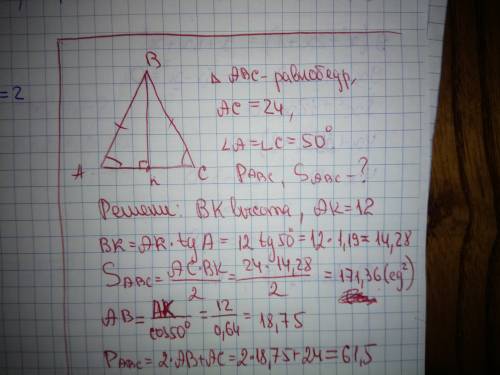 = 2
B
A
K
C
Δ ABC - равнобедр,
AC = 24,
∠A = ∠C = 50°
P ABC, S ABC - ?
Решени: BK высота, AK = 12
BK = AK · tg A = 12 tg 50° = 12 · 1,19 = 14,28
S ABC = AC · BK / 2 = 24 · 14,28 / 2 = 171,36 (ед²)
AB = AK / cos 50° = 12 / 0,64 = 18,75
P ABC = 2 · AB + AC = 2 · 18,75 + 24 = 61,5